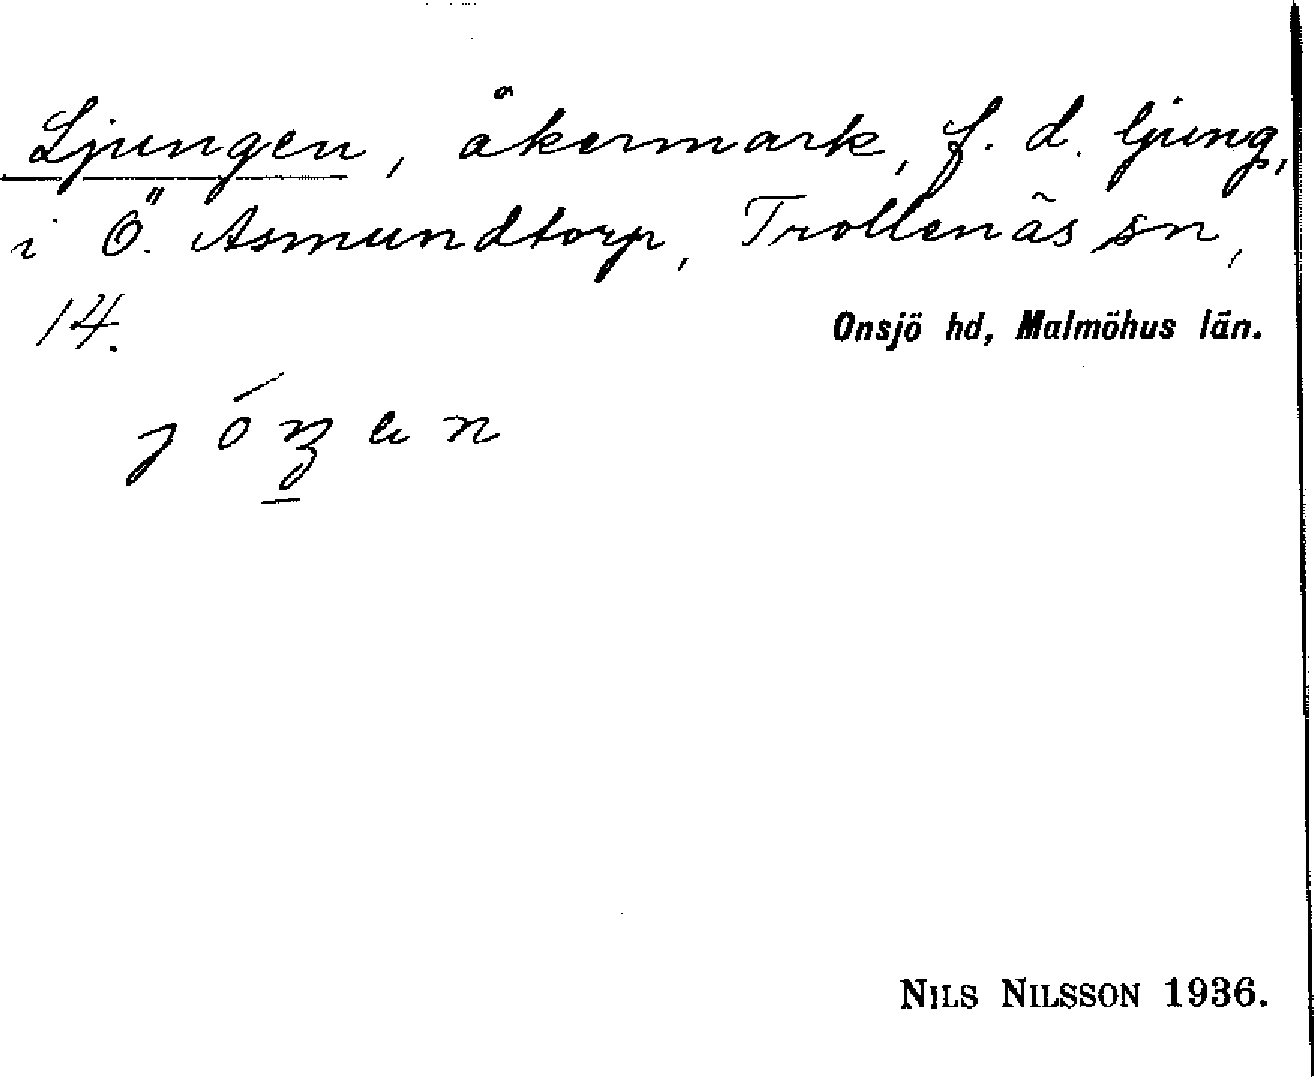 Ljungen, åkermark, f. d. ljung,
i Ö. Asmundtorp, Trollenäs sn,
14.
Onsjö hd, Malmöhus län.
NILS NILSSON 1936.